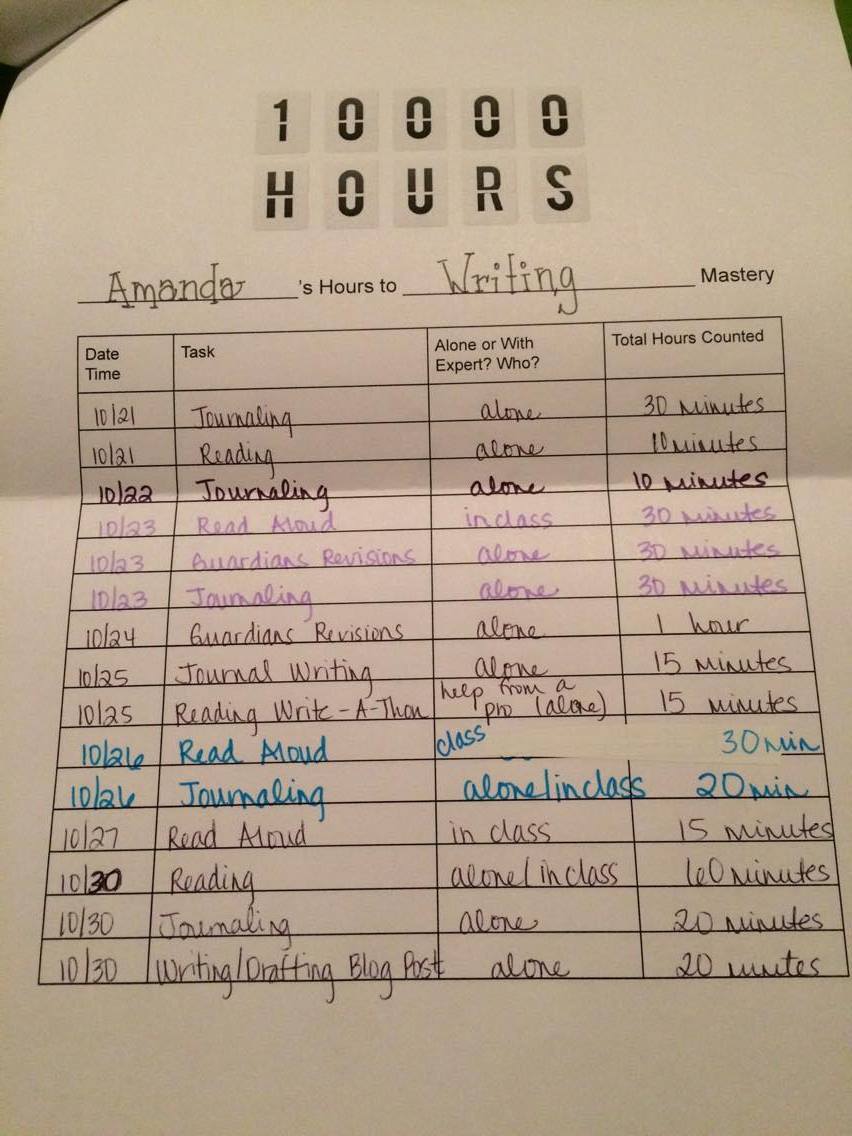 10000
HOURS
Amanda 's Hours to Writing Mastery
Date Time Task Alone or With Expert? Who? Total Hours Counted
10/21 Journaling alone 30 minutes
10/21 Reading alone 10 minutes
10/22 Journaling alone 10 minutes
10/23 Read Aloud in class 30 minutes
10/23 Guardians Revisions alone 30 minutes
10/23 Journaling alone 30 minutes
10/24 Guardians Revisions alone 1 hour
10/25 Journal Writing alone 15 minutes
10/25 Reading Write-A-Thon help from a pro (alone) 15 minutes
10/26 Read Aloud class 30 min
10/26 Journaling alone/in class 20 min
10/27 Read Aloud in class 15 minutes
10/30 Reading alone/in class 60 minutes
10/30 Journaling alone 20 minutes
10/30 Writing/Drafting Blog Post alone 20 minutes